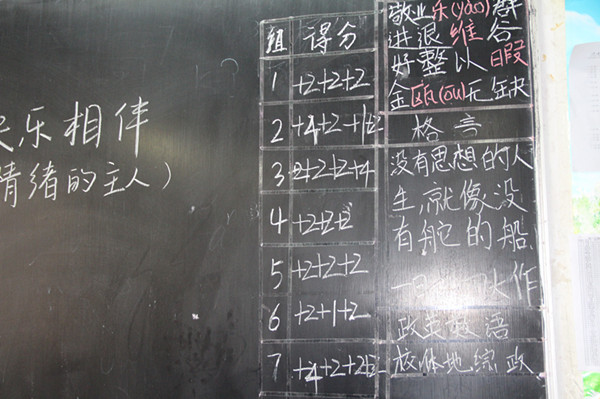 乐相伴
情绪的主人)
组 得分
1 +2+2+2
2 +4+2
3 +2+2+4
4 +2+2+2
5 +2+2+2
6 +2+1+2
7 +4+2+2
敬业乐(yào)群
进退维谷
好整以暇
金瓯(ōu)无缺
格言
没有思想的人
生,就像没
有舵的船
作
语
校体地综政